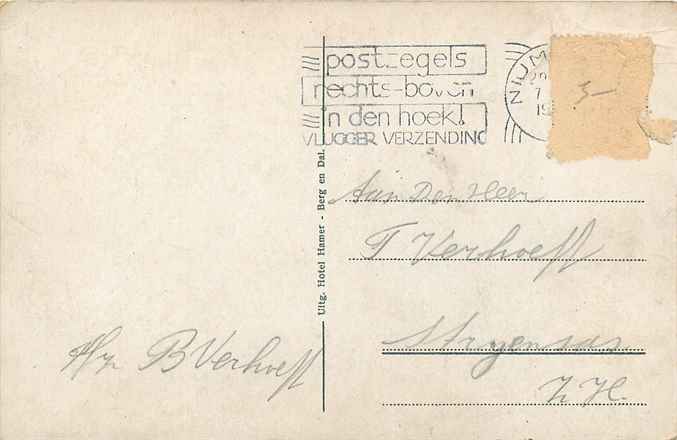 postzegels
rechts-boven
in den hoek!
VLUGGER VERZENDING
NIJM
5-
Uitg. Hotel Hamer - Berg en Dal.
Aan Den Heer
T Verhoeff
Stryensas
Z.H.
B Verhoeff